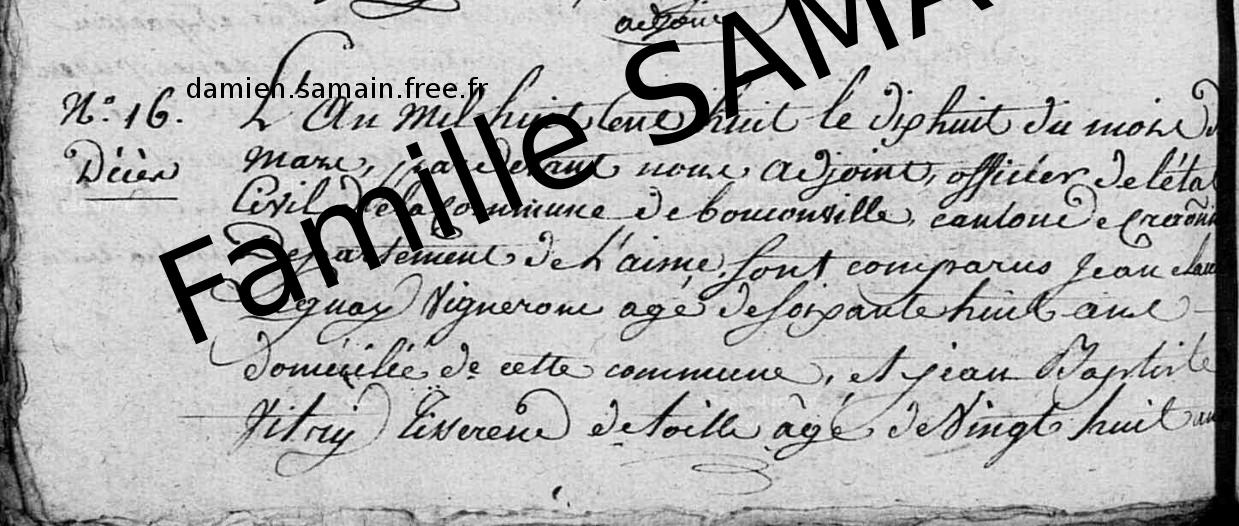 adjoint
damien.samain.free.fr
Famille SAMA
N.° 16.
Décès
L'An Mil huit Cent huit le dix huit du mois de
Mars, pardevant nous Adjoint, officier de l'état
Civil de la Commune de bouconville, cantone de Craonne
Departement de L'aisne, sont comparus Jean
Lequay Vigneron agé de soixante huit ans
domicilié de cette commune, et jean Baptiste
Vitry Tisserend de toille âgé de Vingt huit ans